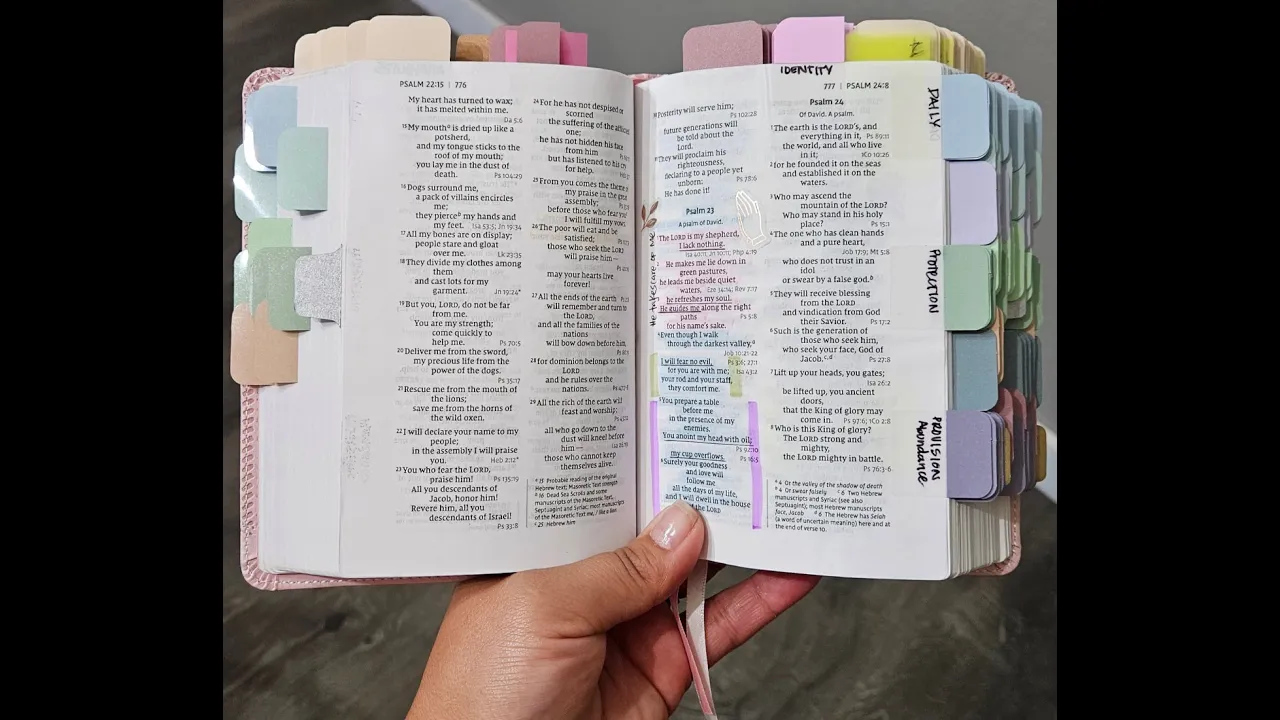 PSALM 22:15 | 776
My heart has turned to wax;
it has melted within me.
Da 5:6
15 My mouth a is dried up like a
potsherd,
and my tongue sticks to the
roof of my mouth;
you lay me in the dust of
death.
Ps 104:29
16 Dogs surround me,
a pack of villains encircles
me;
they pierce b my hands and
my feet.
Isa 53:5; Jn 19:34
17 All my bones are on display;
people stare and gloat
over me.
Lk 23:35
18 They divide my clothes among
them
and cast lots for my
garment.
Jn 19:24*
19 But you, LORD, do not be far
from me.
You are my strength;
come quickly to
help me.
Ps 70:5
20 Deliver me from the sword,
my precious life from the
power of the dogs.
Ps 35:17
21 Rescue me from the mouth of
the lions;
save me from the horns of
the wild oxen.
22 I will declare your name to my
people;
in the assembly I will praise
you.
Heb 2:12*
23 You who fear the LORD,
praise him!
Ps 135:19
All you descendants of
Jacob, honor him!
Revere him, all you
descendants of Israel!
Ps 33:8
24 For he has not despised or
scorned
the suffering of the afflicted
one;
he has not hidden his face
from him
but has listened to his cry
for help.
25 From you comes the theme of
my praise in the great
assembly;
before those who fear you
I will fulfill my vows.
26 The poor will eat and be
satisfied;
those who seek the LORD
will praise him—
may your hearts live
forever!
27 All the ends of the earth
will remember and turn to
the LORD,
and all the families of the
nations
will bow down before him,
28 for dominion belongs to the
LORD
and he rules over the
nations.
29 All the rich of the earth will
feast and worship;
all who go down to the
dust will kneel before
him—
those who cannot keep
themselves alive.
a 15 Probable reading of the original
Hebrew text; Masoretic Text strength
b 16 Dead Sea Scrolls and some
manuscripts of the Masoretic Text,
Septuagint and Syriac; most manuscripts
of the Masoretic Text me, / like a lion
c 25 Hebrew him
IDENTITY
777 | PSALM 24:8
30 Posterity will serve him;
Ps 102:28
future generations will
be told about the
Lord.
31 They will proclaim his
righteousness,
declaring to a people yet
unborn:
Ps 78:6
He has done it!
Psalm 23
A psalm of David.
He takes care of me
1 The LORD is my shepherd,
I lack nothing.
Isa 40:11; Jn 10:11; Php 4:19
2 He makes me lie down in
green pastures,
he leads me beside quiet
waters,
Eze 34:14; Rev 7:17
3 he refreshes my soul.
He guides me along the right
paths
Ps 5:8
for his name's sake.
4 Even though I walk
through the darkest valley, a
Job 10:21-22
I will fear no evil,
Ps 3:6; 27:1
for you are with me;
Isa 43:2
your rod and your staff,
they comfort me.
5 You prepare a table
before me
in the presence of my
enemies.
You anoint my head with oil;
Ps 92:10
my cup overflows.
Ps 16:5
6 Surely your goodness
and love will
follow me
all the days of my life,
and I will dwell in the house
the LORD
Psalm 24
Of David. A psalm.
1 The earth is the LORD's, and
everything in it,
Ps 89:11
the world, and all who live
in it;
1Co 10:26
2 for he founded it on the seas
and established it on the
waters.
3 Who may ascend the
mountain of the LORD?
Who may stand in his holy
place?
Ps 15:1
4 The one who has clean hands
and a pure heart,
Job 17:9; Mt 5:8
who does not trust in an
idol
or swear by a false god. b
5 They will receive blessing
from the LORD
and vindication from God
their Savior.
Ps 17:2
6 Such is the generation of
those who seek him,
who seek your face, God of
Jacob. c, d
Ps 27:8
7 Lift up your heads, you gates;
Isa 26:2
be lifted up, you ancient
doors,
that the King of glory may
come in.
Ps 97:6; 1Co 2:8
8 Who is this King of glory?
The LORD strong and
mighty,
the LORD mighty in battle.
Ps 76:3-6
a 4 Or the valley of the shadow of death
b 4 Or swear falsely c 6 Two Hebrew
manuscripts and Syriac (see also
Septuagint); most Hebrew manuscripts
face, Jacob d 6 The Hebrew has Selah
(a word of uncertain meaning) here and at
the end of verse 10.
DAILY
PROTECTION
PROVISION
Abundance